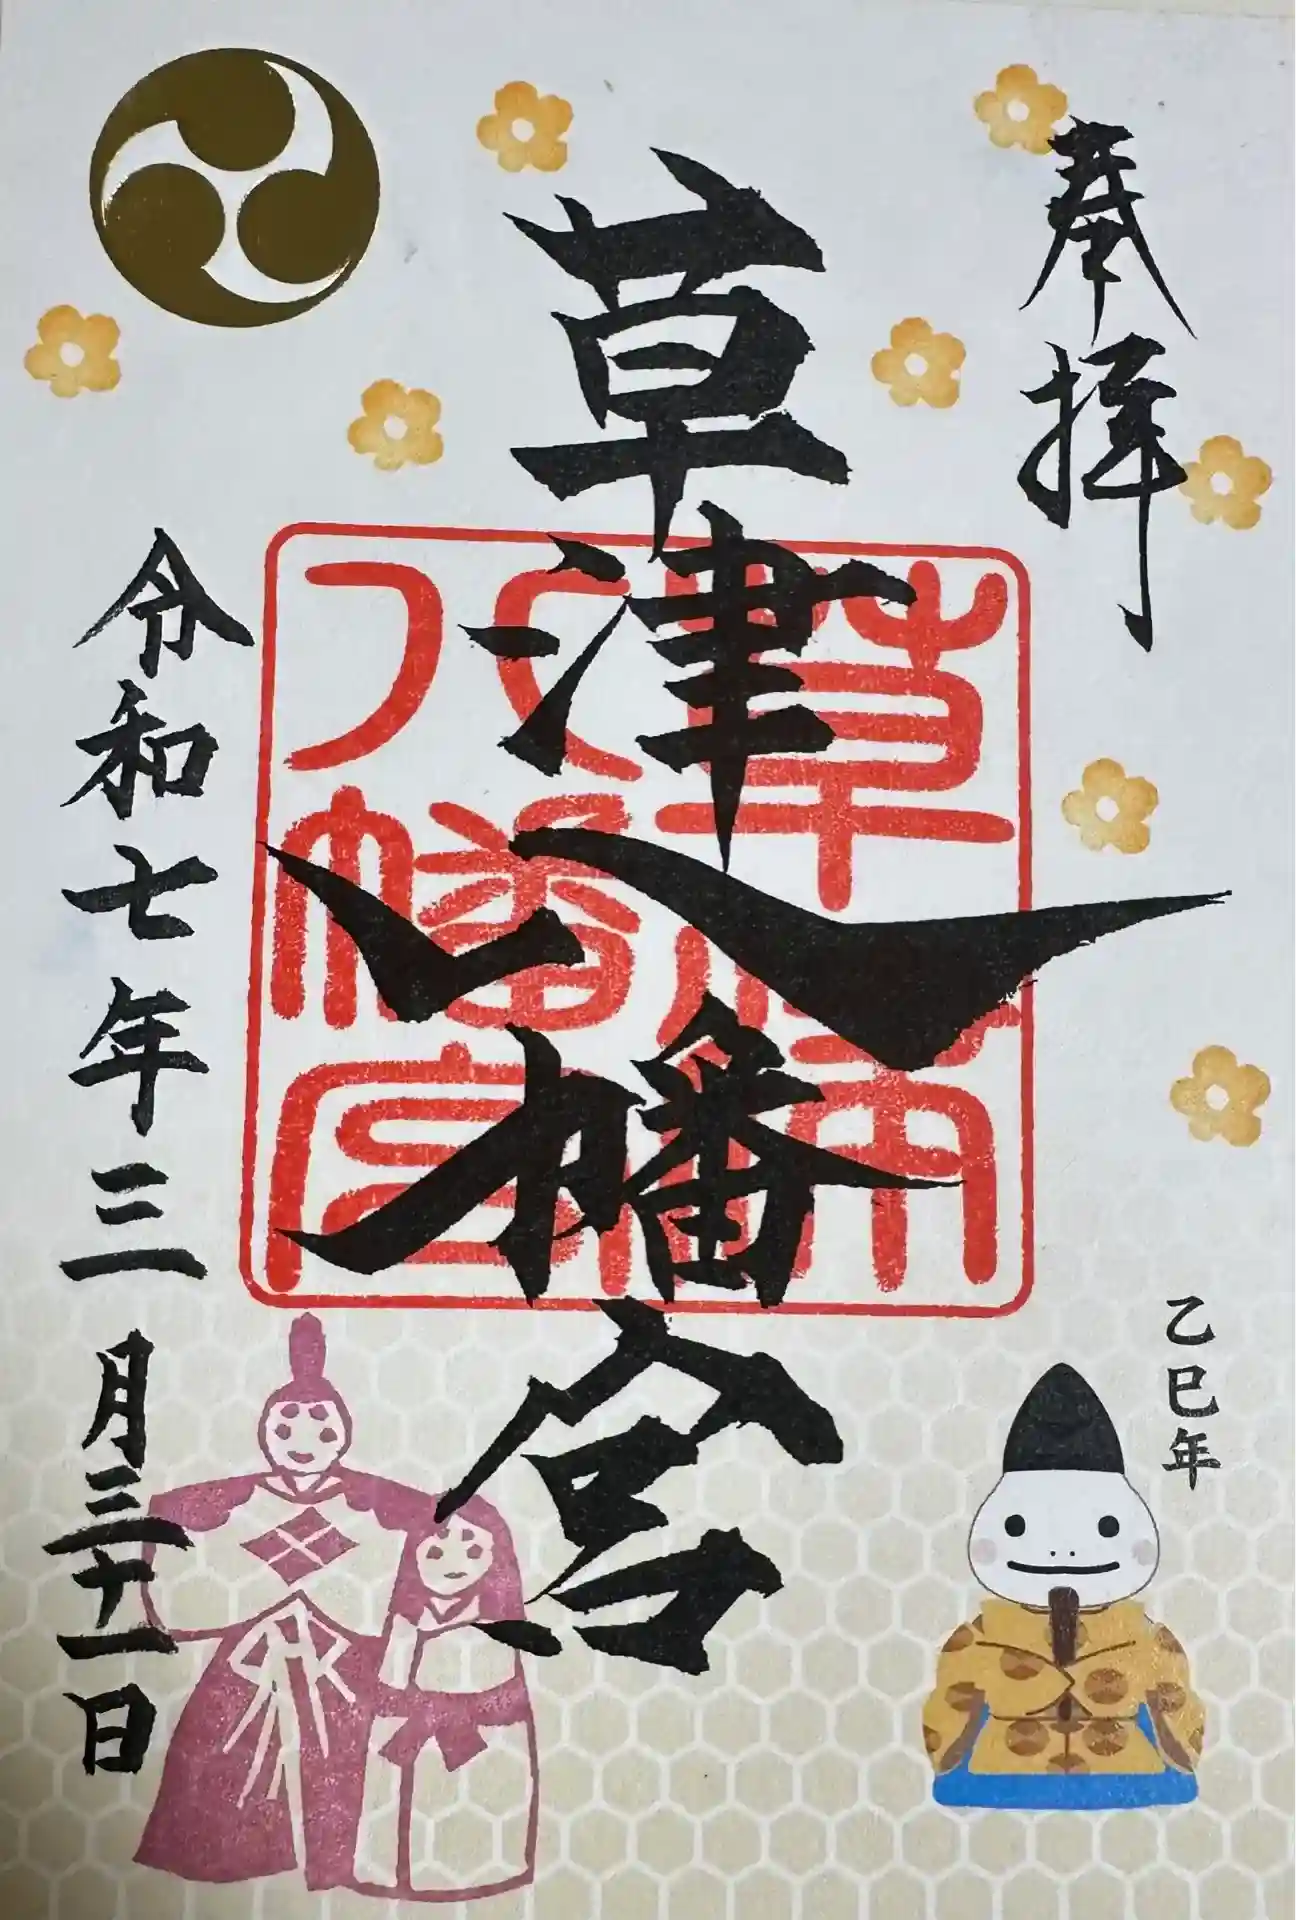 奉拝
草津八幡宮
草津
八幡宮
乙巳年
令和七年三月三十一日